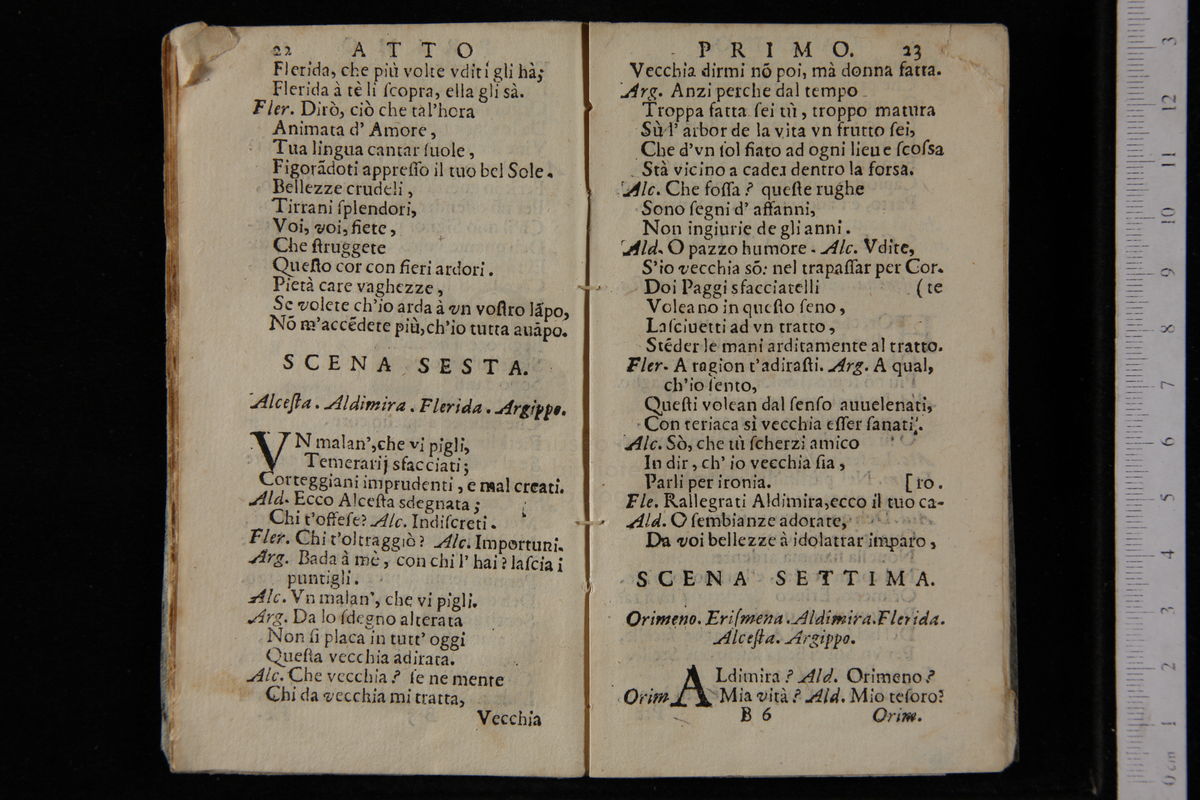 22 ATTO
Flerida, che più volte vditi gli hà;
Flerida à tè li ſcopra, ella gli sà.
Fler. Dirò, ciò che tal'hora
Animata d' Amore,
Tua lingua cantar ſuole,
Figorãdoti appreſſo il tuo bel Sole.
Bellezze crudeli,
Tirrani ſplendori,
Voi, voi, ſiete,
Che ſtruggete
Queſto cor con fieri ardori.
Pietà care vaghezze,
Se volete ch'io arda à vn voſtro lãpo,
Nõ m'accẽdete più, ch'io tutta auãpo.
SCENA SESTA.
Alceſta. Aldimira. Flerida. Argippo.
VN malan', che vi pigli,
Temerarij sfacciati;
Corteggiani imprudenti, e mal creati.
Ald. Ecco Alceſta sdegnata;
Chi t'offeſe? Alc. Indiſcreti.
Fler. Chi t'oltraggiò? Alc. Importuni.
Arg. Bada à mè, con chi l' hai? laſcia i
puntigli.
Alc. Vn malan', che vi pigli.
Arg. Da lo ſdegno alterata
Non ſi placa in tutt' oggi
Queſta vecchia adirata.
Alc. Che vecchia? ſe ne mente
Chi da vecchia mi tratta,
Vecchia
PRIMO. 23
Vecchia dirmi nõ poi, mà donna fatta.
Arg. Anzi perche dal tempo
Troppa fatta ſei tù, troppo matura
Sù l' arbor de la vita vn frutto ſei,
Che d'vn ſol fiato ad ogni lieue ſcoſsa
Stà vicino a cader dentro la forsa.
Alc. Che foſſa? queſte rughe
Sono ſegni d' affanni,
Non ingiurie de gli anni.
Ald. O pazzo humore. Alc. Vdite,
S'io vecchia sõ: nel trapaſſar per Cor.
Doi Paggi sfacciatelli (te
Voleano in queſto ſeno,
Laſciuetti ad vn tratto,
Stẽder le mani arditamente al tratto.
Fler. A ragion t'adiraſti. Arg. A qual,
ch'io ſento,
Queſti volean dal ſenſo auuelenati,
Con teriaca sì vecchia eſſer ſanati.
Alc. Sò, che tù ſcherzi amico
In dir, ch' io vecchia ſia,
Parli per ironia. [ro.
Fle. Rallegrati Aldimira, ecco il tuo ca-
Ald. O ſembianze adorate,
Da voi bellezze à idolatrar imparo,
SCENA SETTIMA.
Orimeno. Eriſmena. Aldimira. Flerida.
Alceſta. Argippo.
ALdimira? Ald. Orimeno?
Orim. Mia vità? Ald. Mio teſoro?
B 6 Orim.
0 cm 1 2 3 4 5 6 7 8 9 10 11 12 3